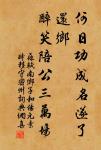 何日功成名遂了
還鄉
醉笑陪公三萬場
蘇軾南鄉子和楊元素
時移守密州詞典網